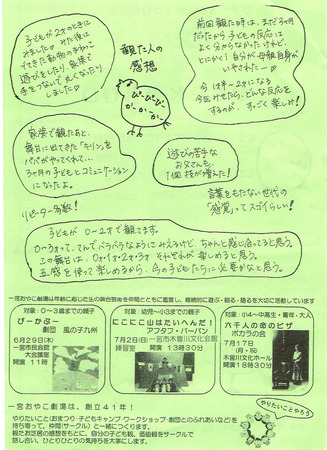 観た人の
感想
子どもが2才のときに
みました♡ みた後は
手をつないで丸くなったり
しました♡
前回観た時は、まだ3ヶ月
だったから子どもの反応は
よく分からなかったけれど、
とにかく！自分が母親自身が
いやされたー♡
今は半〜2才になる
今回みせたら、どんな反応を
するのが、すっごく楽しみ！
ぴーぴーぴー
かーかーかー
家族で観たあと、
舞台に出てきた"キリン"を
パパがやってくれて…
3ヶ月の子どもとコミュニケーション
になったよ。
遊びの苦手な
お父さんも、
1個技が増えた！
言葉をもたない世代の
「感覚」ってスゴイらしい！
リピーター多数！
子どもが 0〜2才で観ます。
0〜3才って、てんでバラバラなようにみえるけど、ちゃんと感じ合ってると思う。
この舞台は、0才・1才・2才・3才 それぞれが楽しめると思う。
五感を使って楽しめるから、今の子どもたちに必要かなと思う。
一宮おやこ劇場は年齢に応じた生の舞台芸術を仲間とともに鑑賞し、継続的に遊ぶ・観る・語るを大切に活動しています
対象：0〜3歳までの親子
ぴーかぶー
劇団 風の子九州
6月29日(木)
一宮市民会館
大会議室
開演 11時
対象：幼児〜小3までの親子
にこにこ山はたいへんだ！
アフタフ・バーバン
7月2日(日)一宮市木曽川文化会館
練習室 開演 13時30分
対象：小4〜中高生・青年・大人
六千人の命のビザ
ポカラの会
7月17日
(月・祝)
木曽川文化会館
開演18時30分
一宮おやこ劇場は、創立41年！
やりたいこと(おまつり・子どもキャンプ・ワークショップ・劇団とのふれあいなど)を
持ち寄って、仲間(サークル)と一緒につくります。
観たお芝居の感想をもとに、自分の子ども観、価値観をサークルで
話し合い、ひとりひとりの気持ちを大事にします。
やりたいことやろう